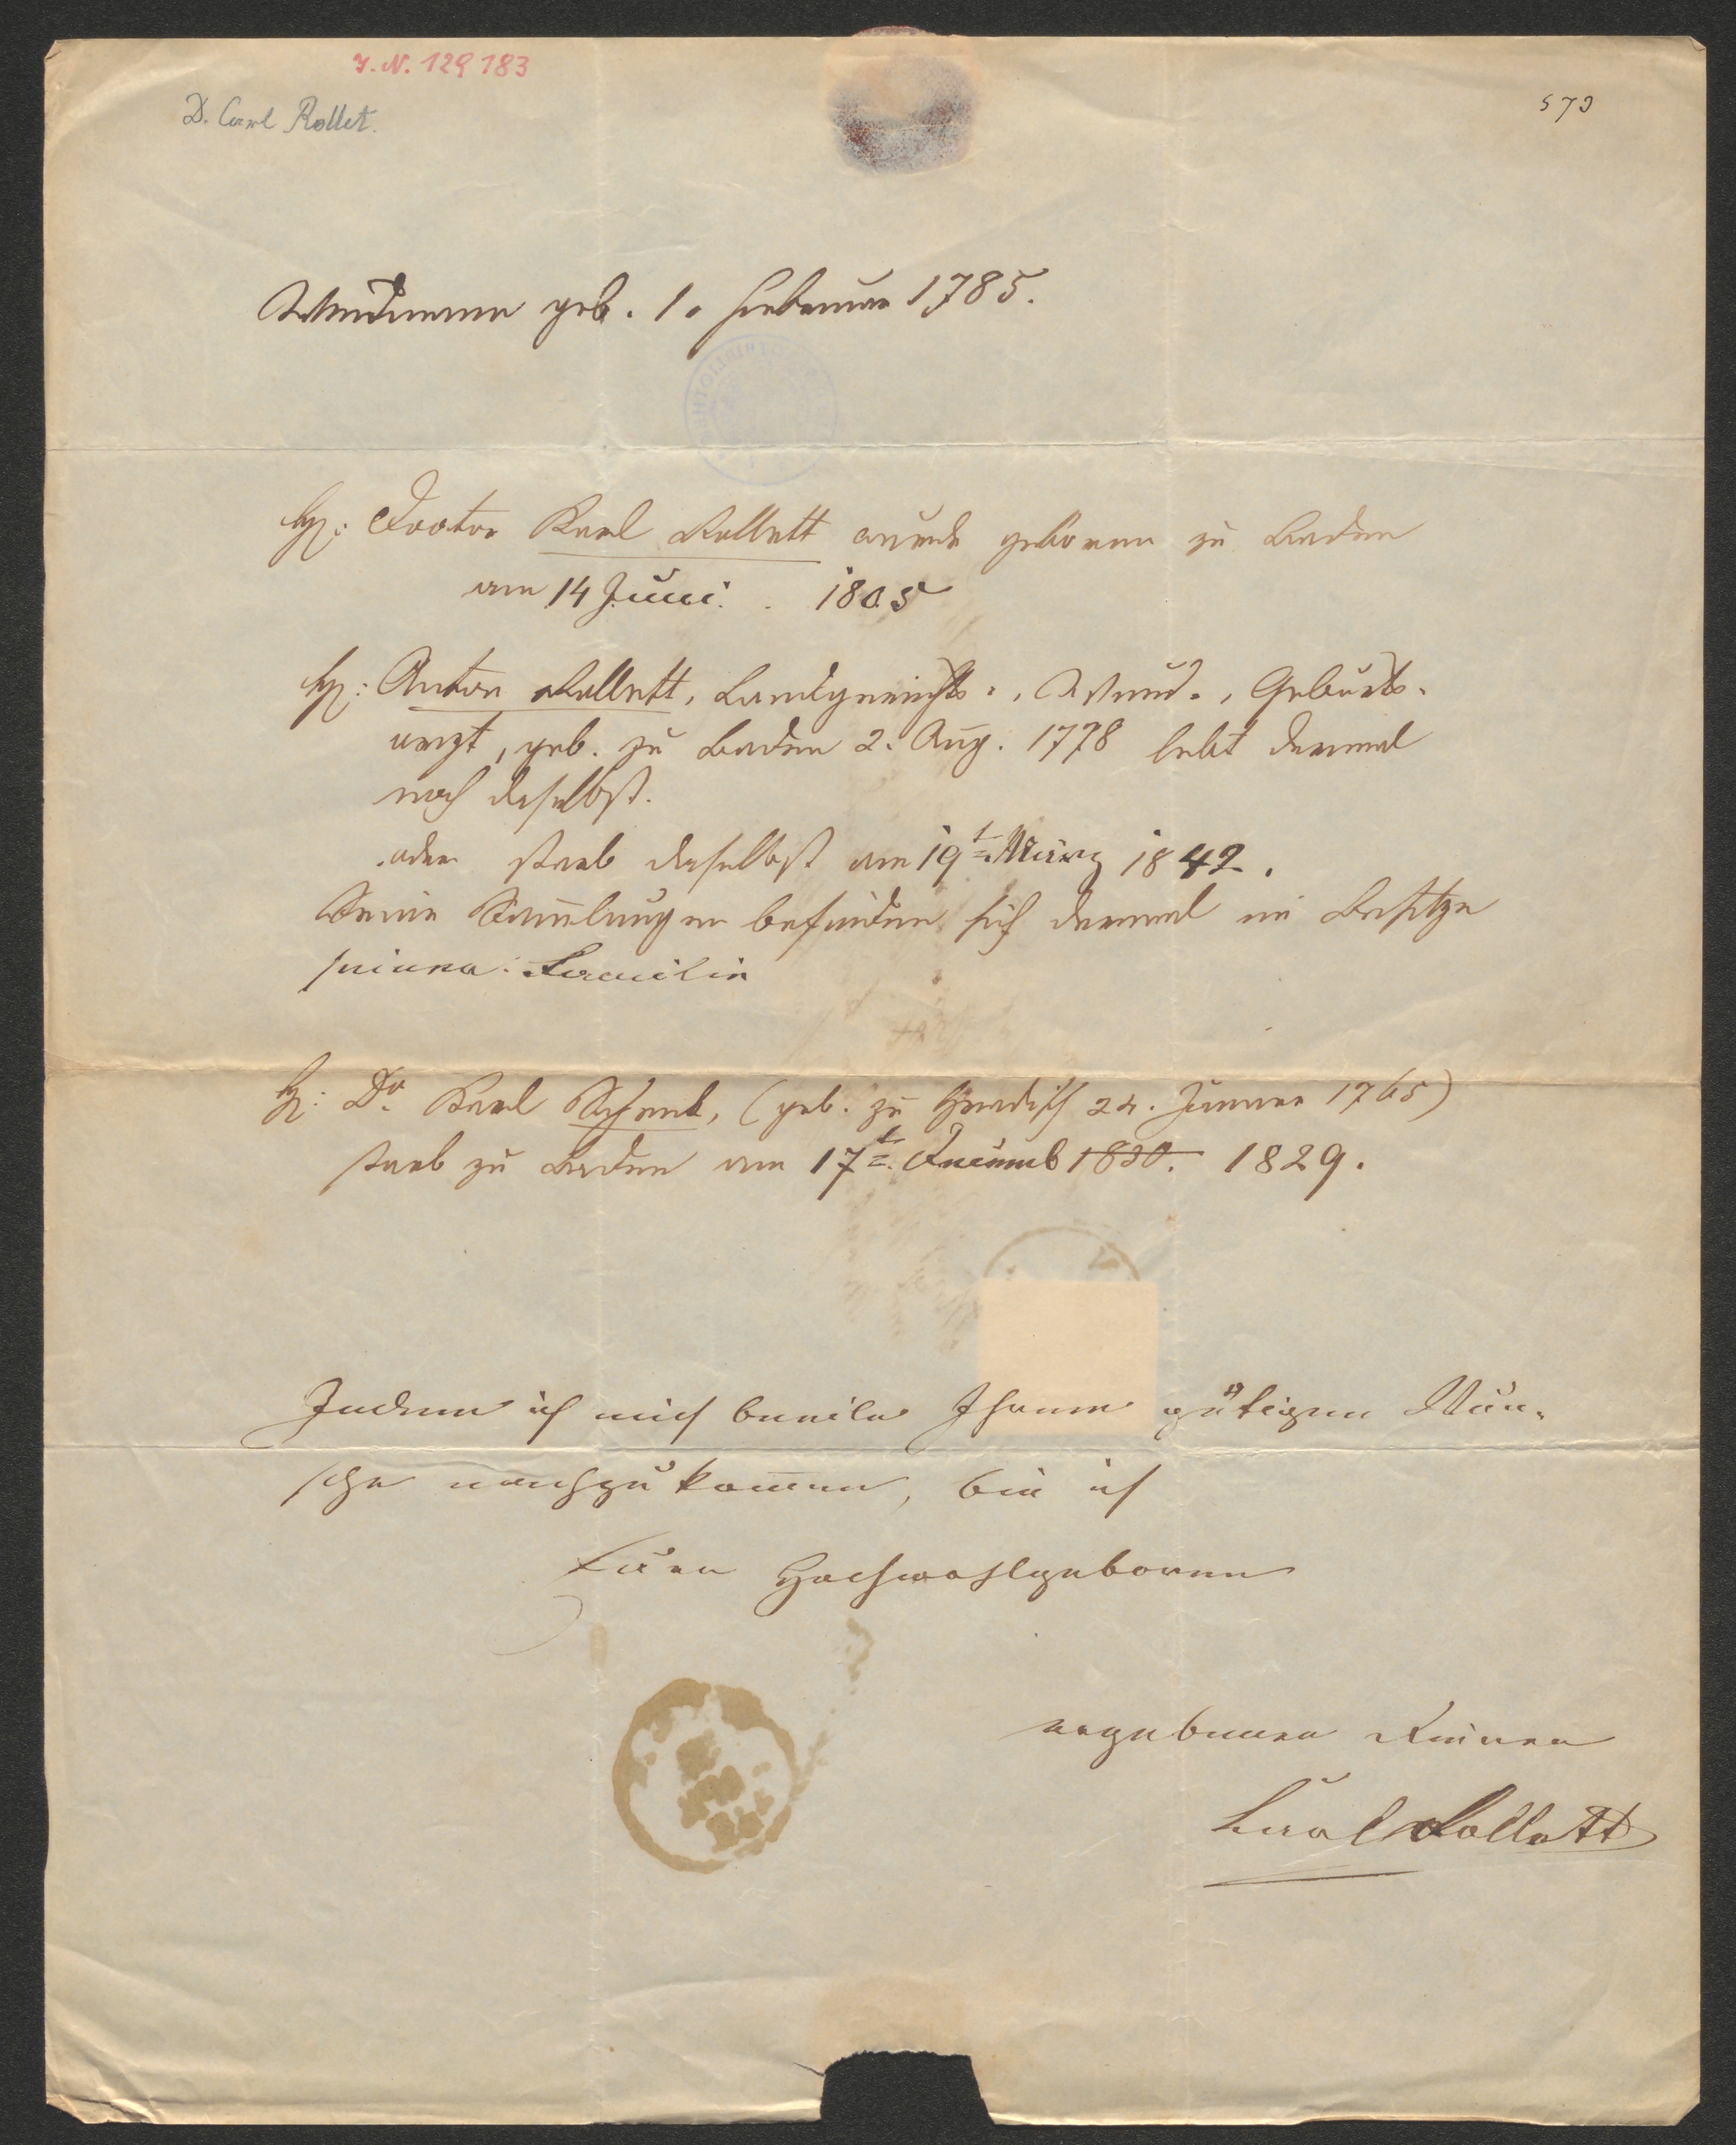 I. N. 129183
D. Carl Rollet.
573
geb. 1. Februar 1785.
H: Doctor Karl Rollett wurde geboren zu Baden
am 14 Juni. 1805
H: Anton Rollett, Landgerichts-, Wund-, Geburts-
arzt, geb. zu Baden 2. Aug. 1778 lebt dermal
noch daselbst.
oder starb daselbst am 19t. März 1842.
Seine Sam̄lungen befinden sich dermal im Besitze
seiner Familie
H: Dr. Karl Schenk, (geb. zu 24. Januar 1765)
starb zu Baden am 17t. Decemb 1830. 1829.
Indem ich mich beeile Ihrem gütigen Wun-
sche nachzukom̄en, bin ich
Euer Hochwohlgeboren
ergebener Diener
Karl Rollett